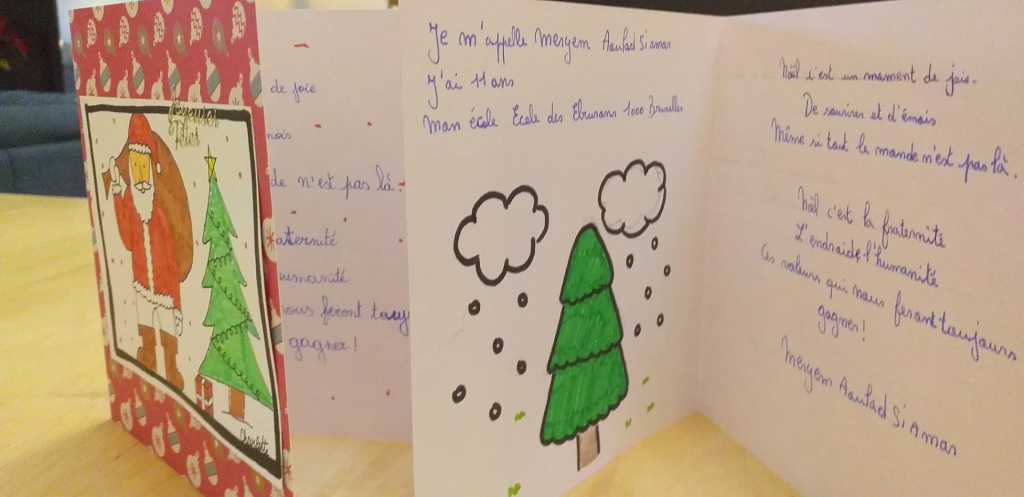 Joyeuses
Fêtes
de joie
mois
de n'est pas là.
aternité
umanité
nous feront touj
gagner!
Je m'appelle Meryem Aoulad Si amar
J'ai 11 ans
Mon école Ecole des Eburons 1000 Bruxelles
Noël c'est un moment de joie.
De sourires et d'émois
Même si tout le monde n'est pas là.
Noël c'est la fraternité
L'endraide l'humanité
Ces valeurs qui nous feront toujours
gagner!
Meryem Aoulad Si Amar